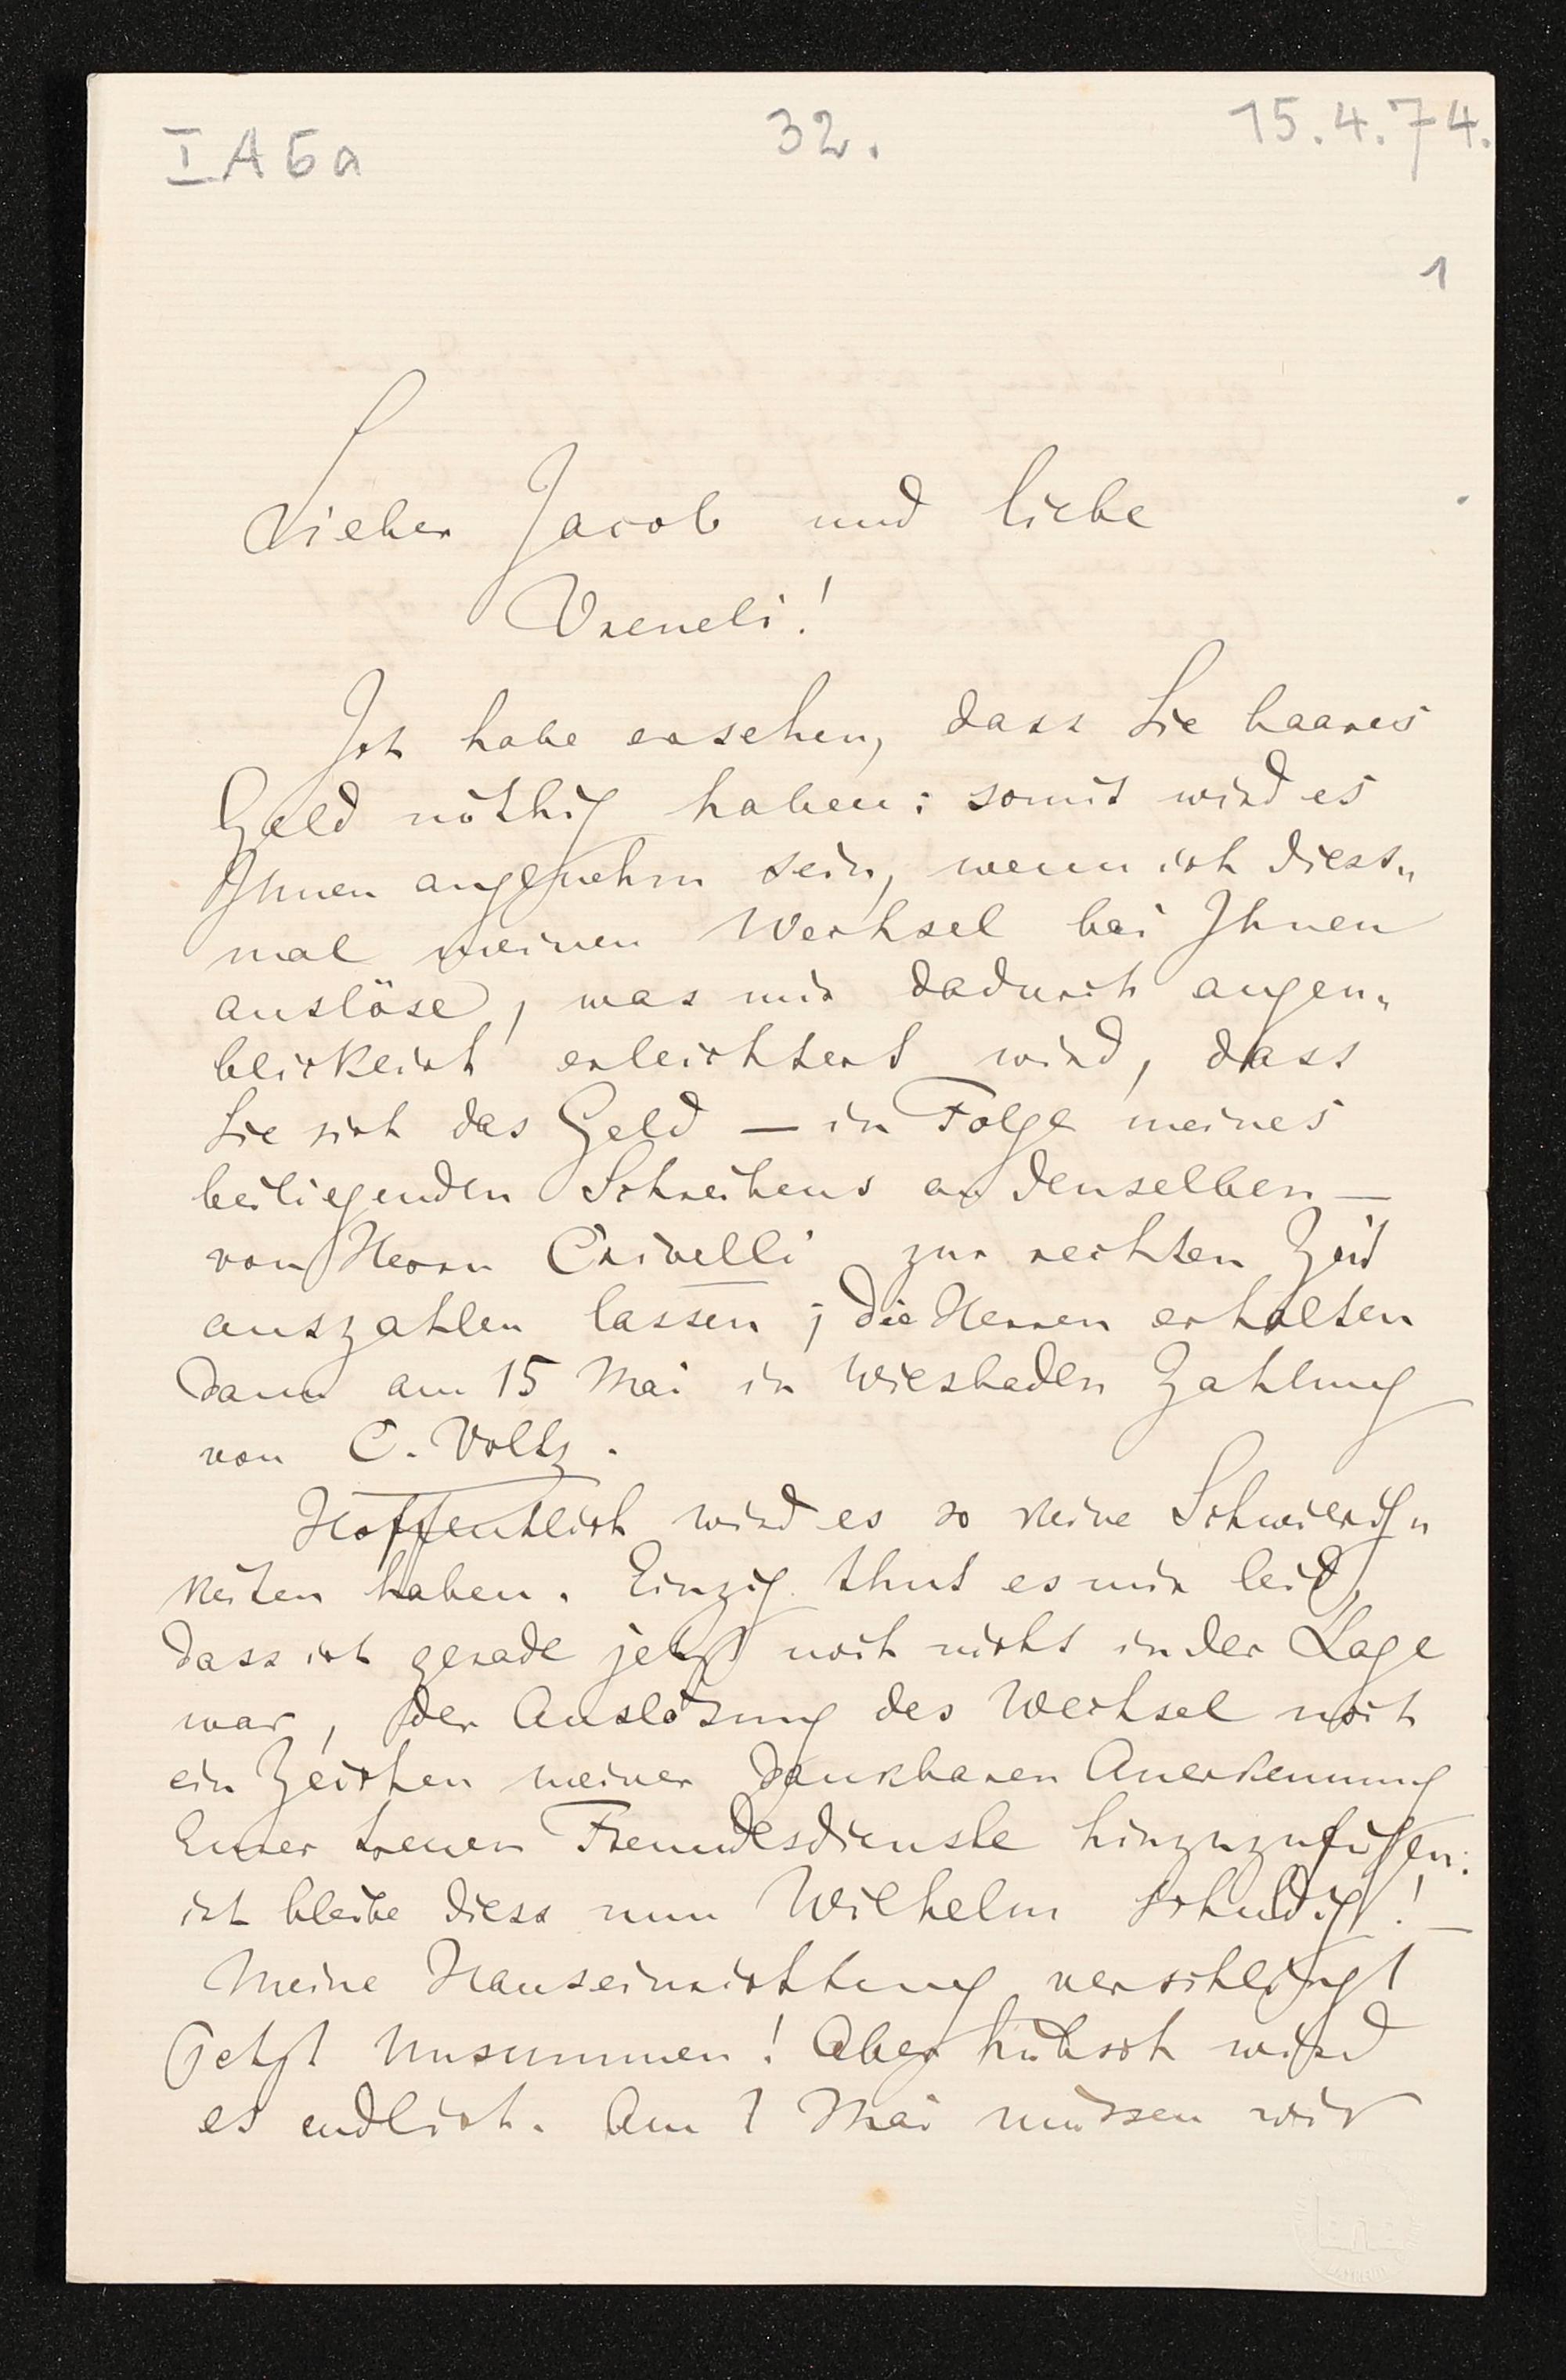 I A 6 a
32.
15.4.74.
1
Lieber Jacob und liebe
Vreneli!
Ich habe ersehen, dass Sie baares
Geld nöthig haben: somit wird es
Ihnen angenehm sein, wenn ich diess„
mal meinen Wechsel bei Ihnen
auslöse, was mir dadurch augen„
blicklich erleichtert wird, dass
Sie sich das Geld — in Folge meines
beiliegenden Schreibens an denselben —
von Herrn Crivelli zur rechten Zeit
auszahlen lassen; die Herren erhalten
dann am 15 Mai in Wiesbaden Zahlung
von C. Voltz.
Hoffentlich wird es so keine Schwierig„
keiten haben. Einzig thut es mir leid,
dass ich gerade jetzt noch nicht in der Lage
war, der Auslösung des Wechsel noch
ein Zeichen meiner dankbaren Anerkennung
Eurer treuen Freundesdienste hinzuzufügen:
ich bleibe diess nun Wilhelm schuldig! —
Meine Hauseinrichtung verschlingt
jetzt Unsummen! Aber hübsch wird
es endlich. Am 1 Mai müssen wir